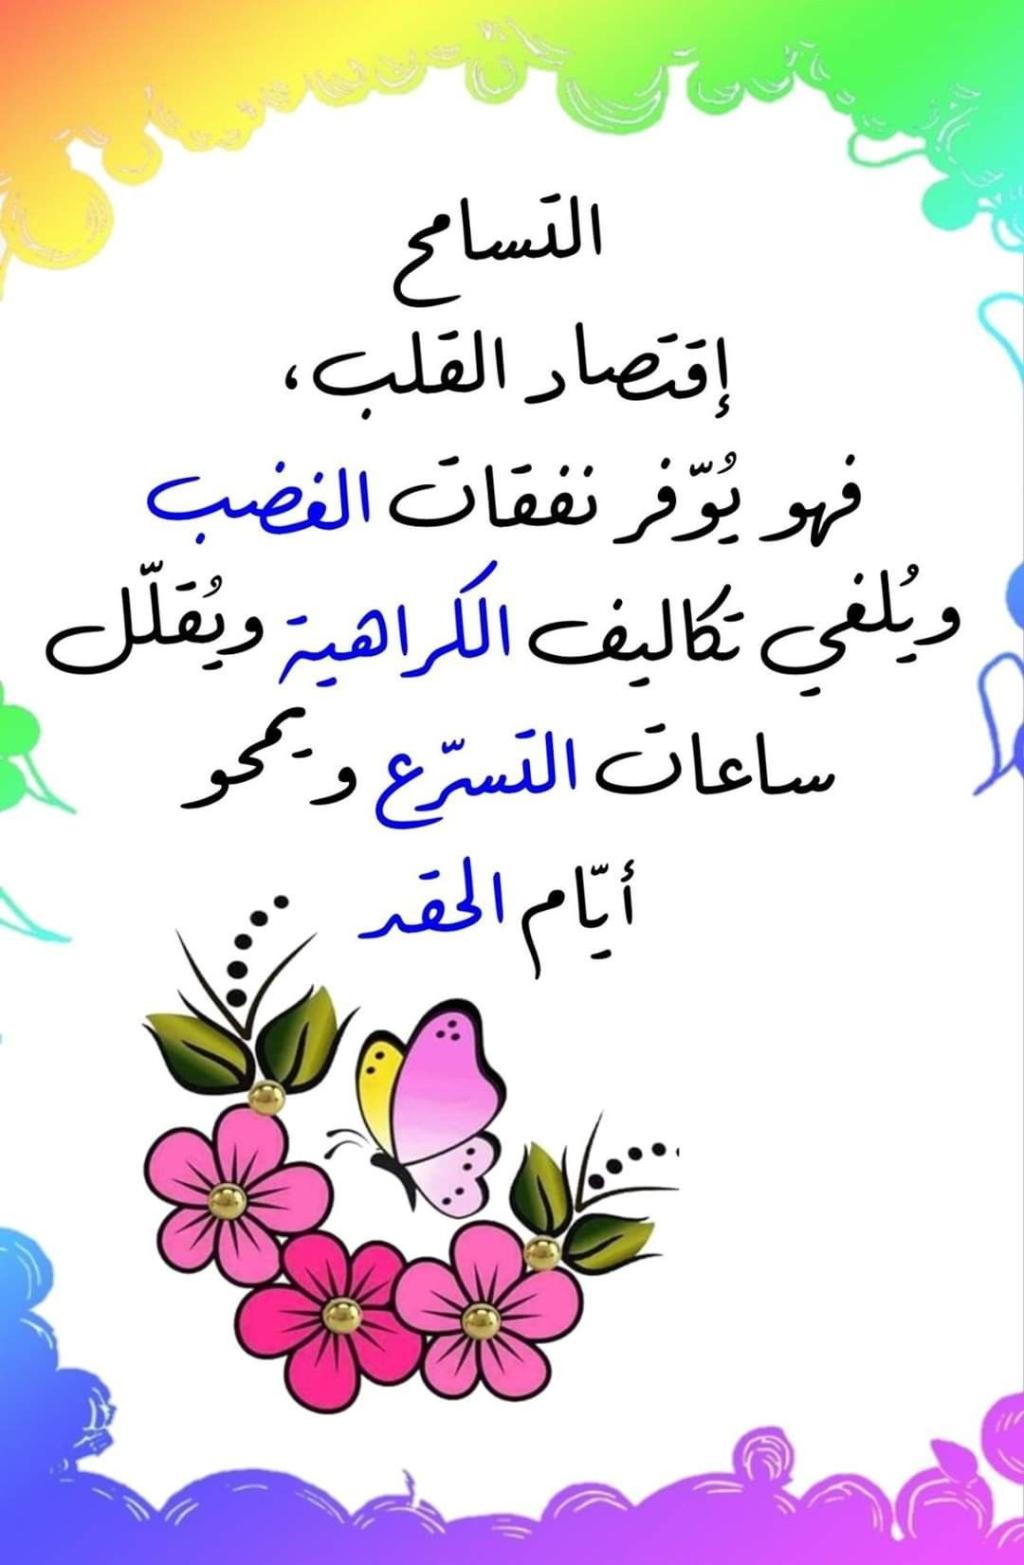 التسامح
إقتصاد القلب،
فهو يُوّفر نفقات الغضب
ويُلغي تكاليف الكراهية ويُقلّل
ساعات التسرّع ويمحو
أيّام الحقد